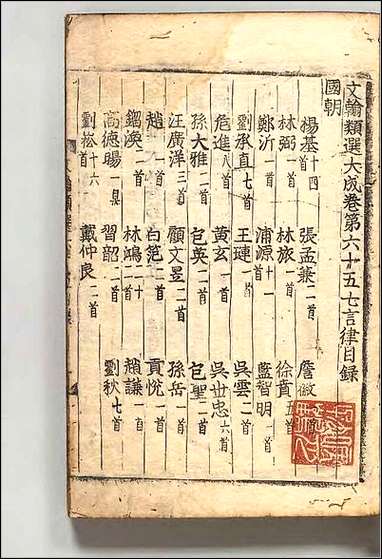 文翰類選大成卷第六十五七言律目録
國朝
楊基十四首 張孟兼一首 詹僌一首
林弼一首 林旅一首 徐賁五首
鄭沂一首 浦源十一首 藍智明一首
劉承直七首 王璉一首 吳雲二首
危進八首 黃玄一首 吳世忠六首
孫大雅二首 包英一首 包聖一首
汪廣洋三首 顧文昱二首 孫岳一首
趙 一首 白范二首 貢悅一首
鎦渙一首 林鴻二十首 趙謙一首
高德暘一首 習韶二首 劉秋七首
劉崧十六首 戴仲良二首